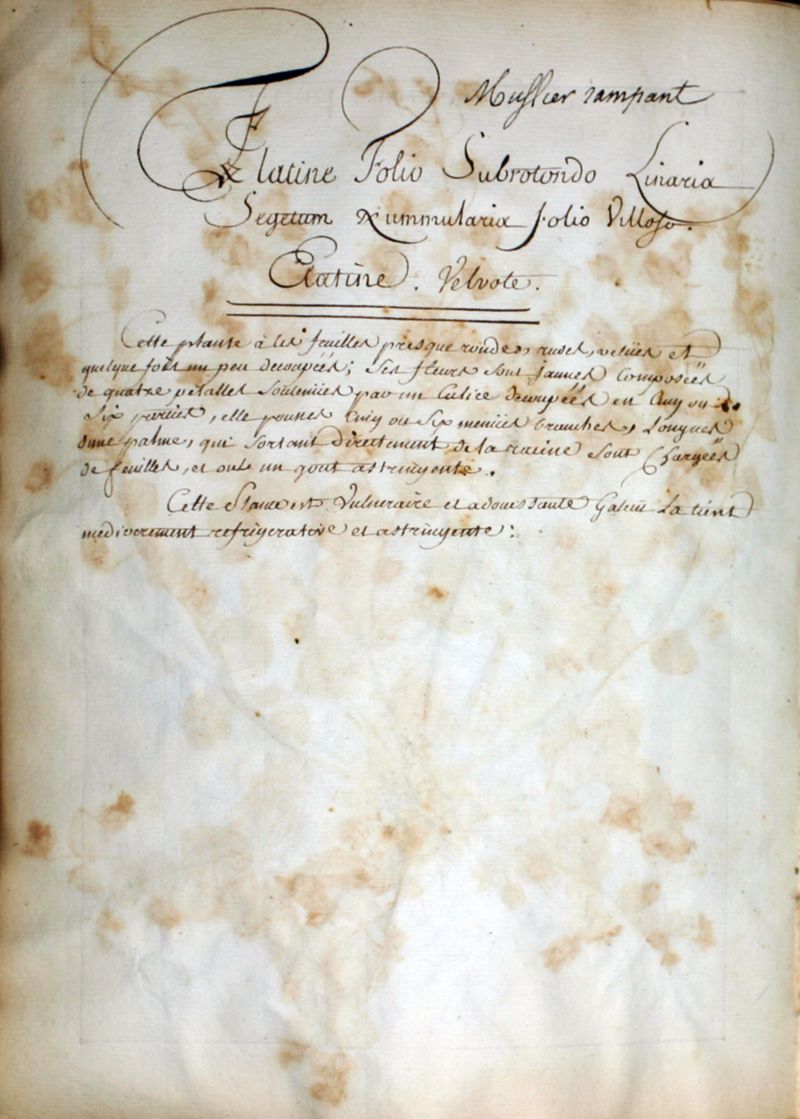 Muflier rampant
Elatine Folio Subrotondo Linaria
Segetum Nummularia folio Villoso.
Elatine. Velvote.
Cette plante à les feuilles presque rondes, ruses, velües et
quelque fois un peu decoupées; Ses fleurs sont jaunes Composées
de quatre petalles soutenües par un Calice decoupées en Cinq ou
Six parties, elle pousses Cinq ou Six menües branches, Longues
dune palme, qui sortant directement de la racine sont Chargées
de feuilles, et ont un gout astringente.
Cette Plante est Vulneraire et adoussante Galien La tient
mediocrement refrigerative et astringente: